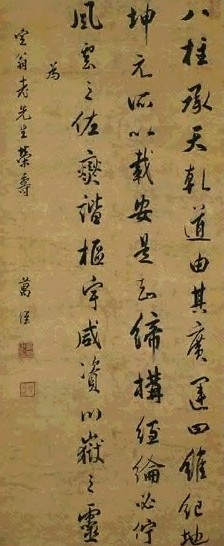 八柱承天乾道由其廣運四維紀地
坤元所以載安是知締構經綸必佇
風雲之佐燮諧樞宰咸資川嶽之靈
為
翁老先生榮壽 萬經